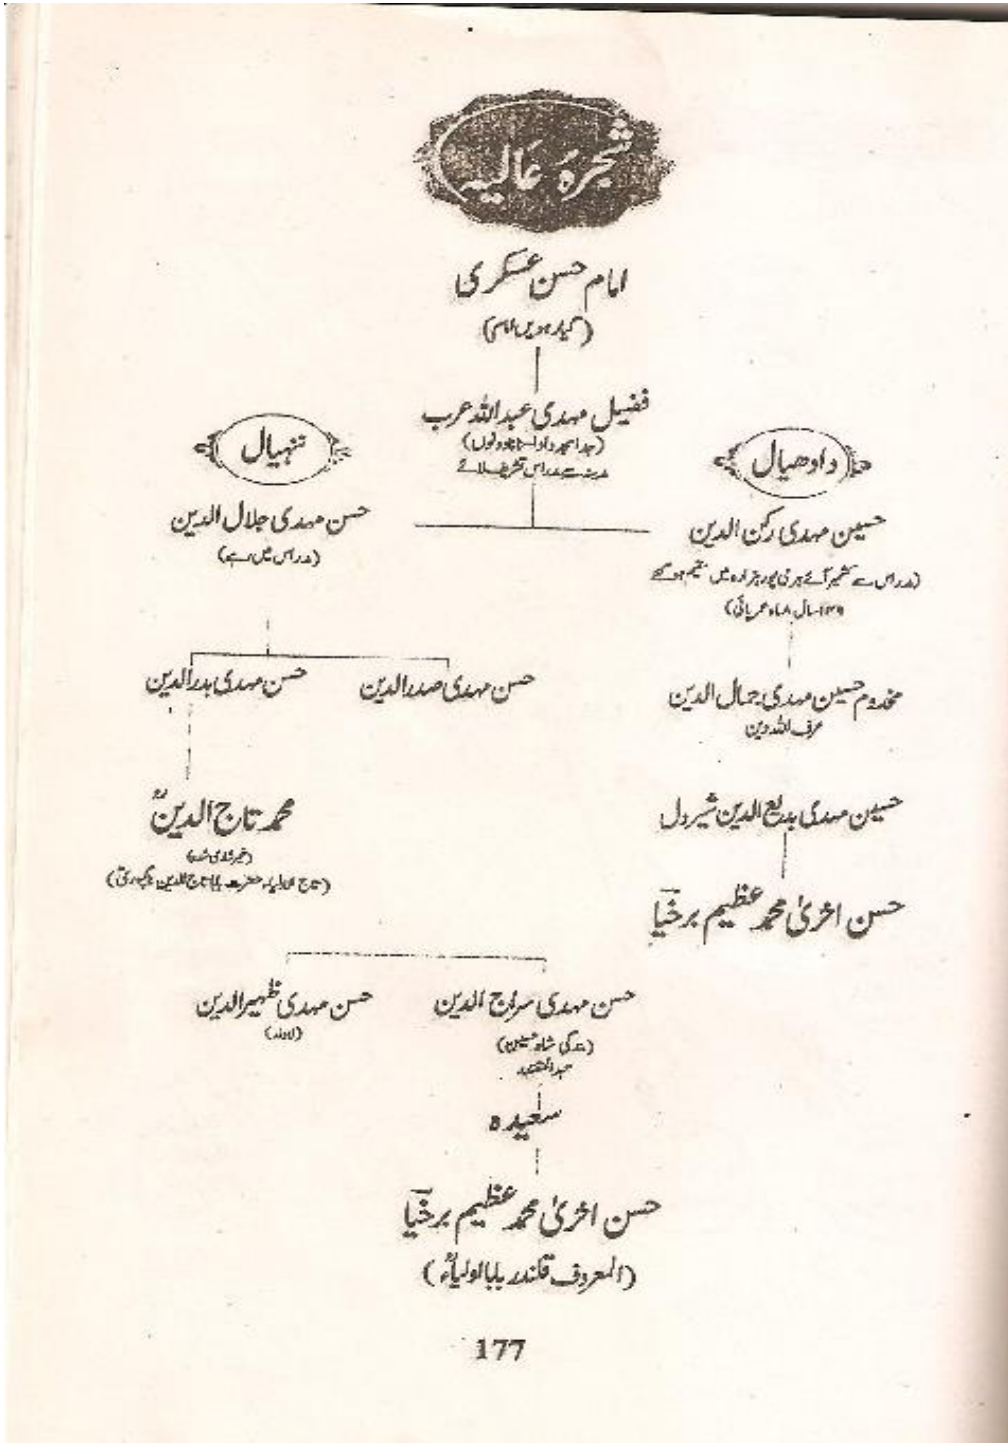 شجرہ عالیہ
امام حسن عسکری
(گیارہویں امام)
فضیل مہدی عبداللہ عرب
(جد امجد دادا نانا دونوں)
مدینہ سے مدراس تشریف لائے
ددھیال
ننہیال
حسین مہدی رکن الدین
(مدراس سے کشمیر آئے ہری پور ہزارہ میں مقیم ہو گئے
۱۳۹ سال ۸ ماہ عمر پائی)
مخدوم حسین مہدی جمال الدین
عرف اللہ دین
حسین مہدی بدیع الدین شیر دل
حسن اخریٰ محمد عظیم برخیاؔ
حسن مہدی جلال الدین
(مدراس میں رہے)
حسن مہدی صدر الدین
حسن مہدی بدر الدین
محمد تاج الدینؒ
(غیر شادی شدہ)
(تاج الاولیاء حضرت بابا تاج الدین ناگپوریؒ)
حسن مہدی سراج الدین
حسن مہدی ظہیر الدین
(لاولد)
سعیدہ
حسن اخریٰ محمد عظیم برخیاؔ
(المعروف قلندر بابا اولیاءؒ)
177